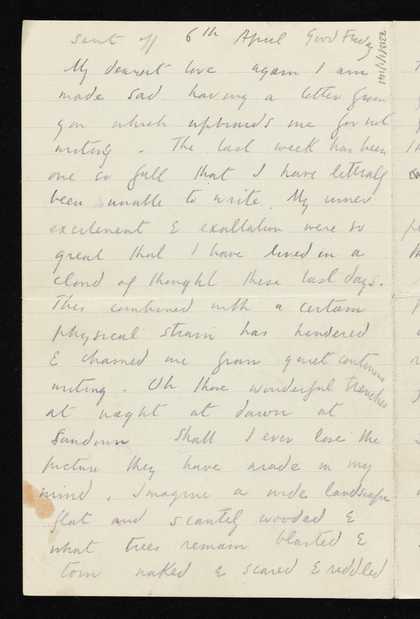 sent off 6th April Good Friday
My dearest love again I am
made sad having a letter from
you which upbraids me for not
writing. The last week has been
one so full that I have literally
been unable to write. My inner
excitement & exaltation were so
great that I have lived in a
cloud of thought these last days.
This combined with a certain
physical strain has hindered
& me from quiet continuous
writing. Oh those wonderful trenches
at night at dawn at
Sundown Shall I ever lose the
picture they have made in my
mind. Imagine a wide landscape
flat and scantily wooded &
what trees remain blasted &
torn naked & scared & riddled